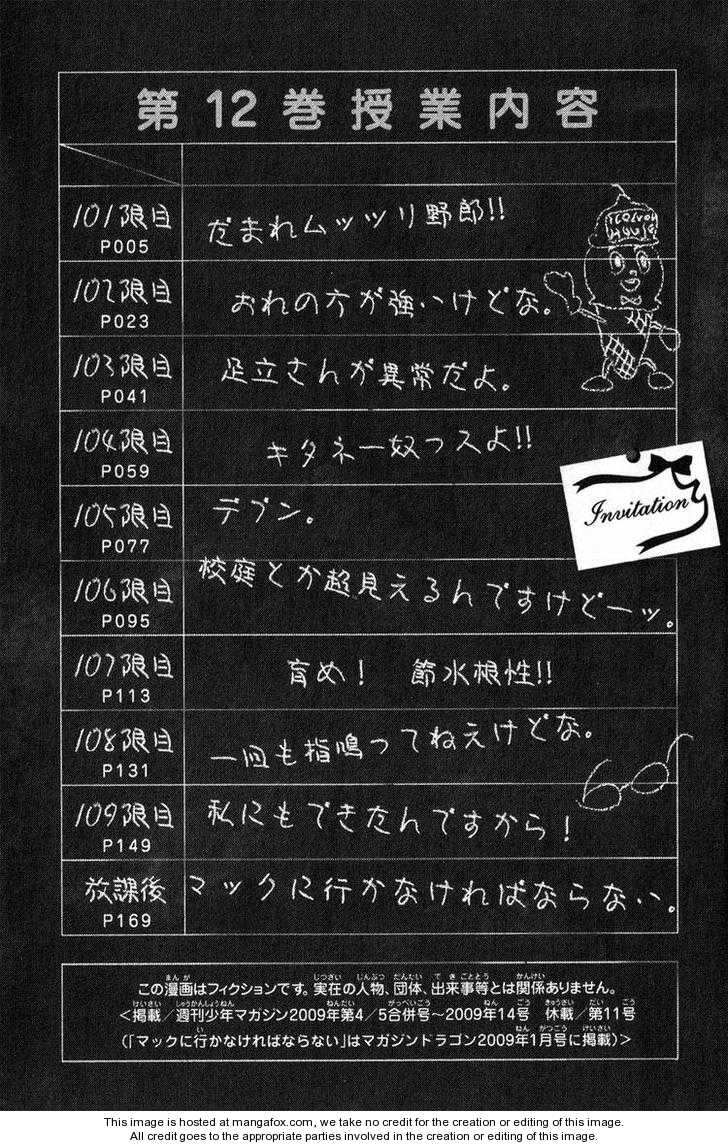 第12巻授業内容
101限目 だまれムッツリ野郎!!
P005
102限目 おれの方が強いけどな。
P023
103限目 足立さんが異常だよ。
P041
104限目 キタネー奴っスよ!!
P059
Invitation
105限目 デブン。
P077
106限目 校庭とか超見えるんですけどーッ。
P095
107限目 育め! 節水根性!!
P113
108限目 一回も指鳴ってねえけどな。
P131
109限目 私にもできたんですから!
P149
放課後 マックに行かなければならない。
P169
この漫画はフィクションです。実在の人物、団体、出来事等とは関係ありません。
<掲載/週刊少年マガジン2009年第4/5合併号~2009年14号 休載/第11号
(「マックに行かなければならない」はマガジンドラゴン2009年1月号に掲載)>
This image is hosted at mangafox.com, we take no credit for the creation or editing of this image.
All credit goes to the appropriate parties involved in the creation or editing of this image.